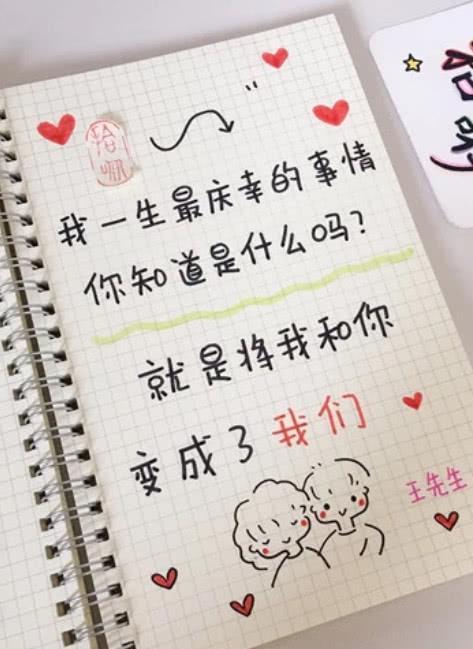 我一生最庆幸的事情
你知道是什么吗?
就是将我和你
变成了我们
王先生